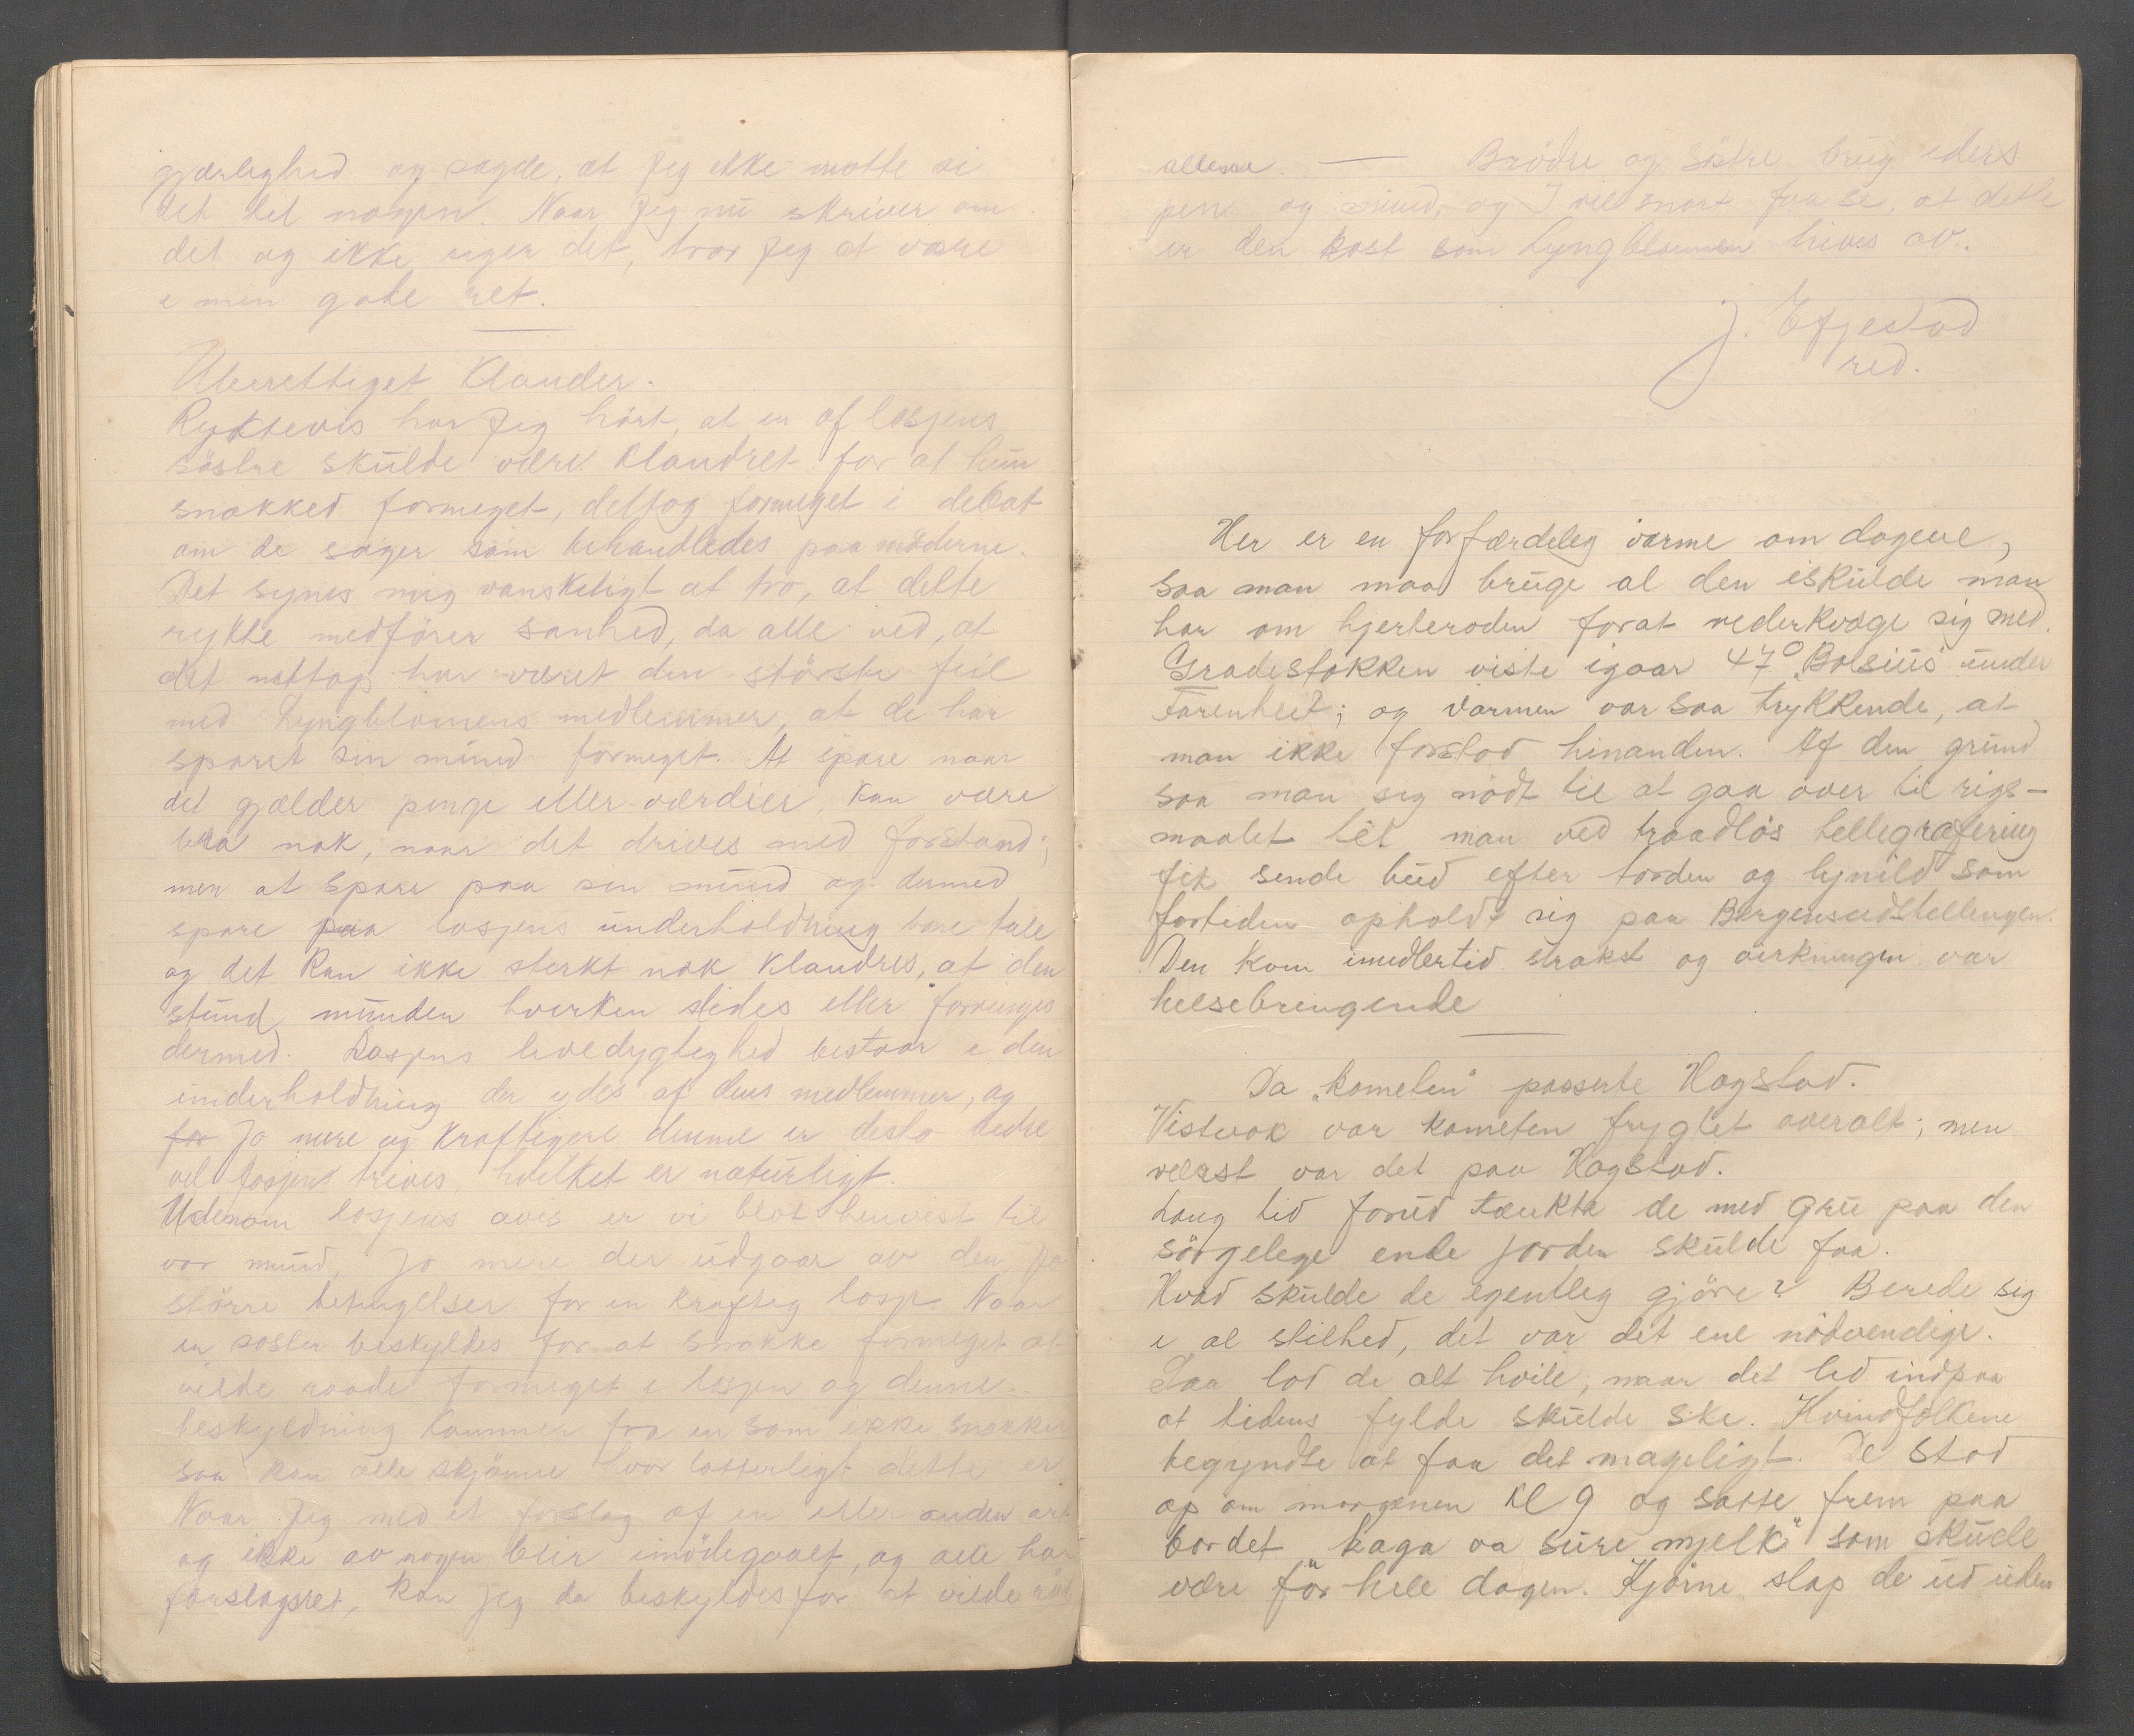 gjærlighed og sagde, at Jeg ikke motte si
det til nogen. Naar Jeg nu skriver om
det og ikke siger det, tror jeg at være
i min gode ret.
Uberettiget Klander.
Ryktevis har Jeg hört, at en af losjens
söstre skulde være klandret for at hun
snakked formeget, deltog formeget i debat
om de sager som behandledes paa möderne.
Det synes mig vanskeligt at tro, at dette
rykte medförer sanhed, da alle ved, at
det nettop har været den störste feil
med Lyngblomens medlemmer, at de har
sparet sin mund formeget. At spare naar
det gjælder penge eller værdier kan være
bra nok, naar det drives med forstand;
men at spare paa sin mund og dermed
spare paa losjens underholdning bare tale
og det kan ikke sterkt nok klandres, at den
stund munden hverken slides eller forringes
dermed. Losjens levedygtighed bestaar i den
underholdning der ydes af dens medlemmer, og
for Jo mere og kraftigere denne er desto bedre
vil losjen trives, hvilket er naturligt.
Udenom losjens avis er vi blot henvist til
vor mund, Jo mere der udgaar av den Jo
större betingelser for en kraftig losje. Naar
en söster beskyldes for at snakke formeget at
vilde raade formeget i losjen og denne
beskyldning kommer fra en som ikke snakker
saa kan alle skjönne hvor latterligt dette er
Naar Jeg med et forslag af en eller anden art
og ikke av nogen blir imödegaaet, og alle har
forslagsret, kan jeg da beskyldes for at vilde raad
allesse. — Brödre og Söstre brug eders
pen og mund, og I vil snart faa se, at dette
er den kost som Lyngblommen trives av.
J. Efjestad
red.
Her er en forfærdeleg varme om dagene,
saa man maa bruge al den iskulde man
har om hjerteroden forat vederkvæge sig med.
Gradestokken viste igaar 47° „Bolsius" under
Farenheit; og varmen var saa trykkende, at
man ikke forstod hinanden. Af den grund
saa man sig nödt til at gaa over til rigs-
maalet til man ved traadlös tellegrafering
fik sende bud efter torden og lynild som
fortiden opholdt sig paa Bergensudstellingen.
Den kom imedlertid strakst og virkningen var
helsebringende
Da „kometen" passerte Hogstad.
Vistnok var kometen frygtet overalt; men
velærst var det paa Hogstad.
Lang tid forud tænkte de med Gru paa den
sörgelege ende jorden skulde faa.
Hvad skulde de egentleg gjöre? Berede sig
i al stilhed, det var det ene nödvendige.
Saa lod de alt hvile, naar det led indpaa
at tidens fylde skulde ske. Kvindfolkene
begyndte at faa det mageligt. De stod
op om morgenen Kl 9 og satte frem paa
bordet „kaga oa sure mjelk" som skulle
være för hele dagen. Kjörne slap de ud uden